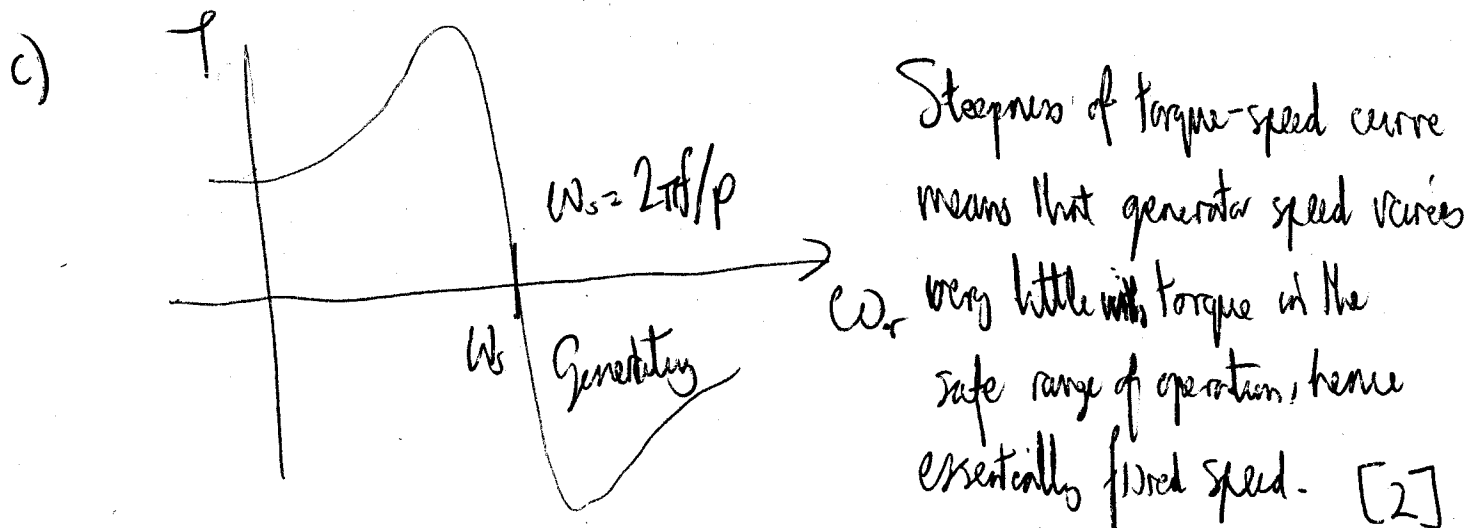 c)
T
ωs = 2πf/p
ωs
Generating
ωr
Steepness of torque-speed curve
means that generator speed varies
very little with torque in the
safe range of operation, hence
essentially fixed speed. [2]